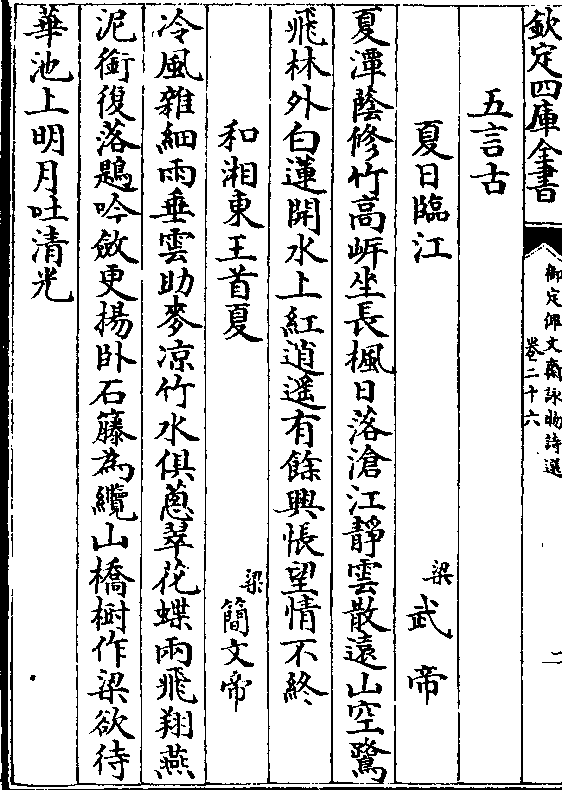 欽定四庫全書
御定佩文齋詠物詩選
卷二十六
二
五言古
夏日臨江
梁武帝
夏潭蔭修竹高岸坐長楓日落滄江靜雲散遠山空鷺
飛林外白蓮開水上紅逍遙有餘興悵望情不終
和湘東王首夏
梁簡文帝
冷風雜細雨垂雲助麥凉竹水俱蔥翠花蝶兩飛翔燕
泥銜復落鶗吟斂更揚卧石籐為纜山橋樹作梁欲待
華池上明月吐清光